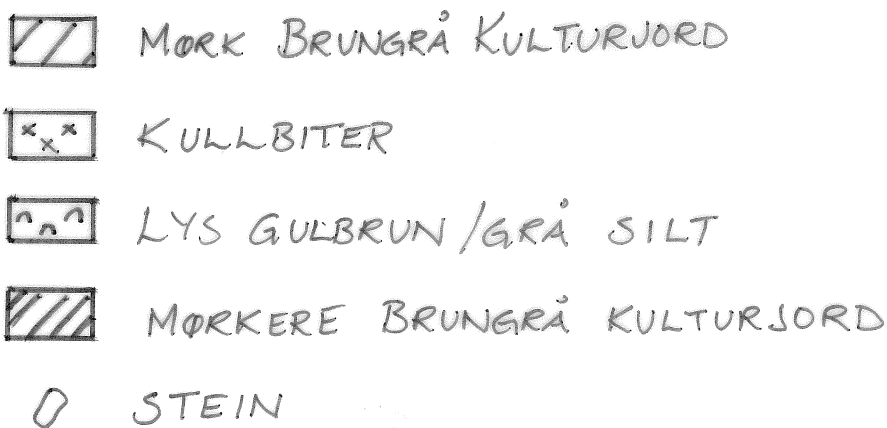 MØRK BRUNGRÅ KULTURJORD
KULLBITER
LYS GULBRUN/GRÅ SILT
MØRKERE BRUNGRÅ KULTURJORD
STEIN